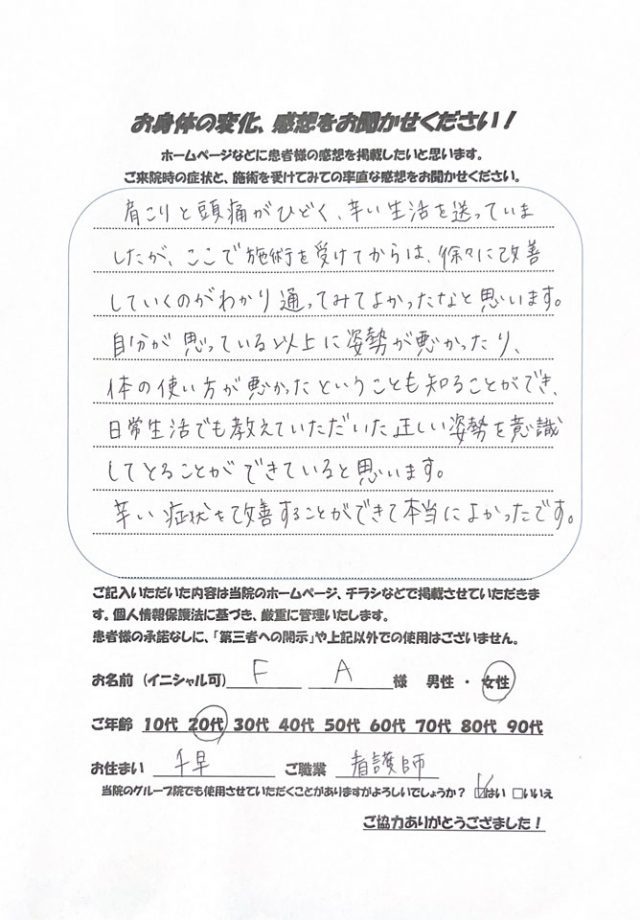 お身体の変化、感想をお聞かせください！
ホームページなどに患者様の感想を掲載したいと思います。
ご来院時の症状と、施術を受けてみての率直な感想をお聞かせください。
肩こりと頭痛がひどく、辛い生活を送っていま
したが、ここで施術を受けてからは、徐々に改善
していくのがわかり通ってみてよかったなと思います。
自分が思っている以上に姿勢が悪かったり、
体の使い方が悪かったということも知ることができ、
日常生活でも教えていただいた正しい姿勢を意識
してとることができていると思います。
辛い症状を改善することができて本当によかったです。
ご記入いただいた内容は当院のホームページ、チラシなどで掲載させていただきま
す。個人情報保護法に基づき、厳重に管理いたします。
患者様の承諾なしに、「第三者への開示」や上記以外での使用はございません。
お名前（イニシャル可） F A 様 男性・女性
ご年齢 10代 20代 30代 40代 50代 60代 70代 80代 90代
お住まい 千早 ご職業 看護師
当院のグループ院でも使用させていただくことがありますがよろしいでしょうか？ ☑はい □いいえ
ご協力ありがとうござました！